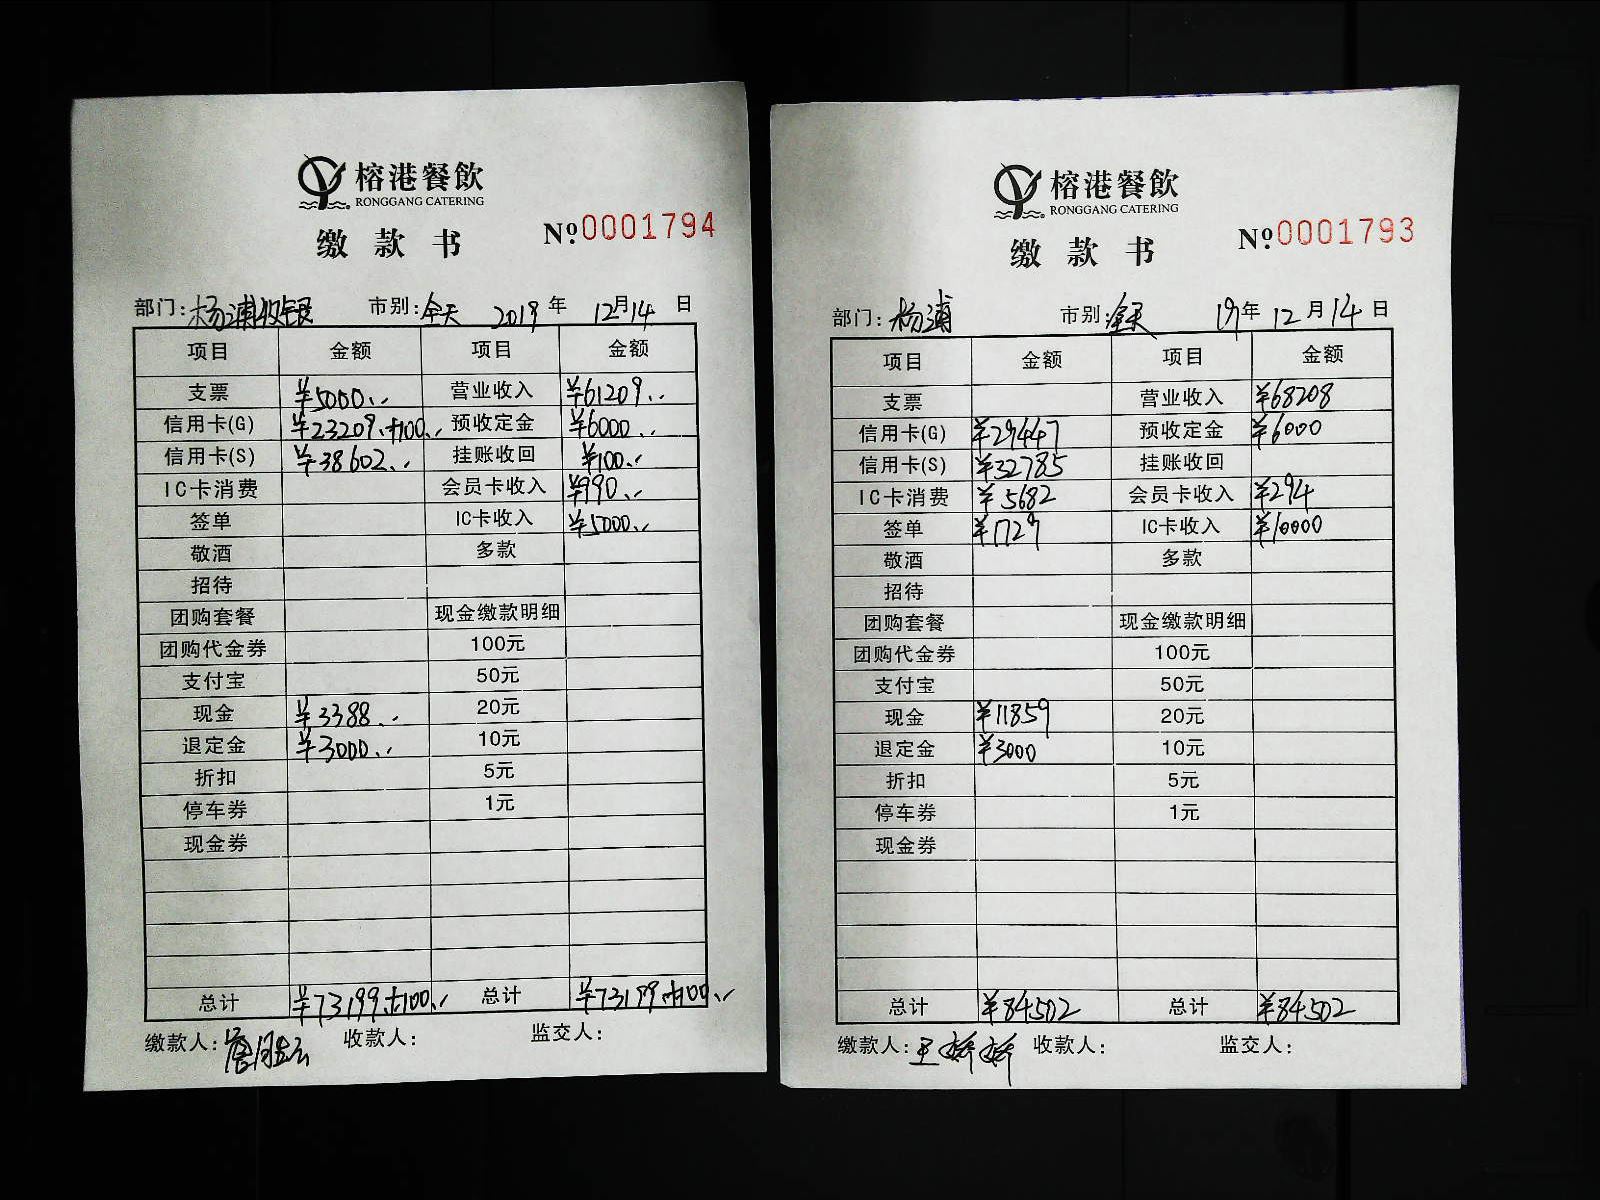 榕港餐飲
RONGGANG CATERING
缴款书
No.0001794
部门:杨浦收银 市别:全天 2019年12月14日
项目 金额 项目 金额
支票 ¥5000.- 营业收入 ¥61209.-
信用卡(G) ¥23209.+100.- 预收定金 ¥6000.-
信用卡(S) ¥38602.- 挂账收回 ¥100.-
IC卡消费 会员卡收入 ¥990.-
签单 IC卡收入 ¥5000.-
敬酒 多款
招待
团购套餐 现金缴款明细
团购代金券 100元
支付宝 50元
现金 ¥3388.- 20元
退定金 ¥3000.- 10元
折扣 5元
停车券 1元
现金券
总计 ¥73199.+100.- 总计 ¥73199.+100.-
缴款人: 收款人: 监交人:
榕港餐飲
RONGGANG CATERING
缴款书
No.0001793
部门:杨浦 市别:全天 19年12月14日
项目 金额 项目 金额
支票 营业收入 ¥68208
信用卡(G) ¥29447 预收定金 ¥6000
信用卡(S) ¥32785 挂账收回
IC卡消费 ¥5682 会员卡收入 ¥294
签单 ¥1729 IC卡收入 ¥10000
敬酒 多款
招待
团购套餐 现金缴款明细
团购代金券 100元
支付宝 50元
现金 ¥11859 20元
退定金 ¥3000 10元
折扣 5元
停车券 1元
现金券
总计 ¥84502 总计 ¥84502
缴款人:王娇娇 收款人: 监交人: